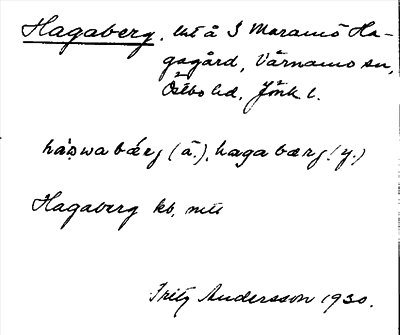 Hagaberg, lht å S Maramö Ha-
gagård, Värnamo sn,
Östbo hd, Jönk l.
haswa bærj (ä.), haga bærj (y.)
Hagaberg kb,
Fritz Andersson 1930.